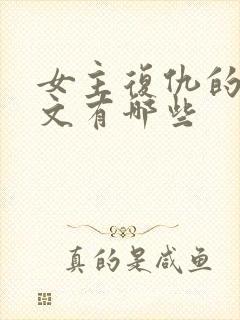 女主復仇的
文有哪些
真的是咸鱼